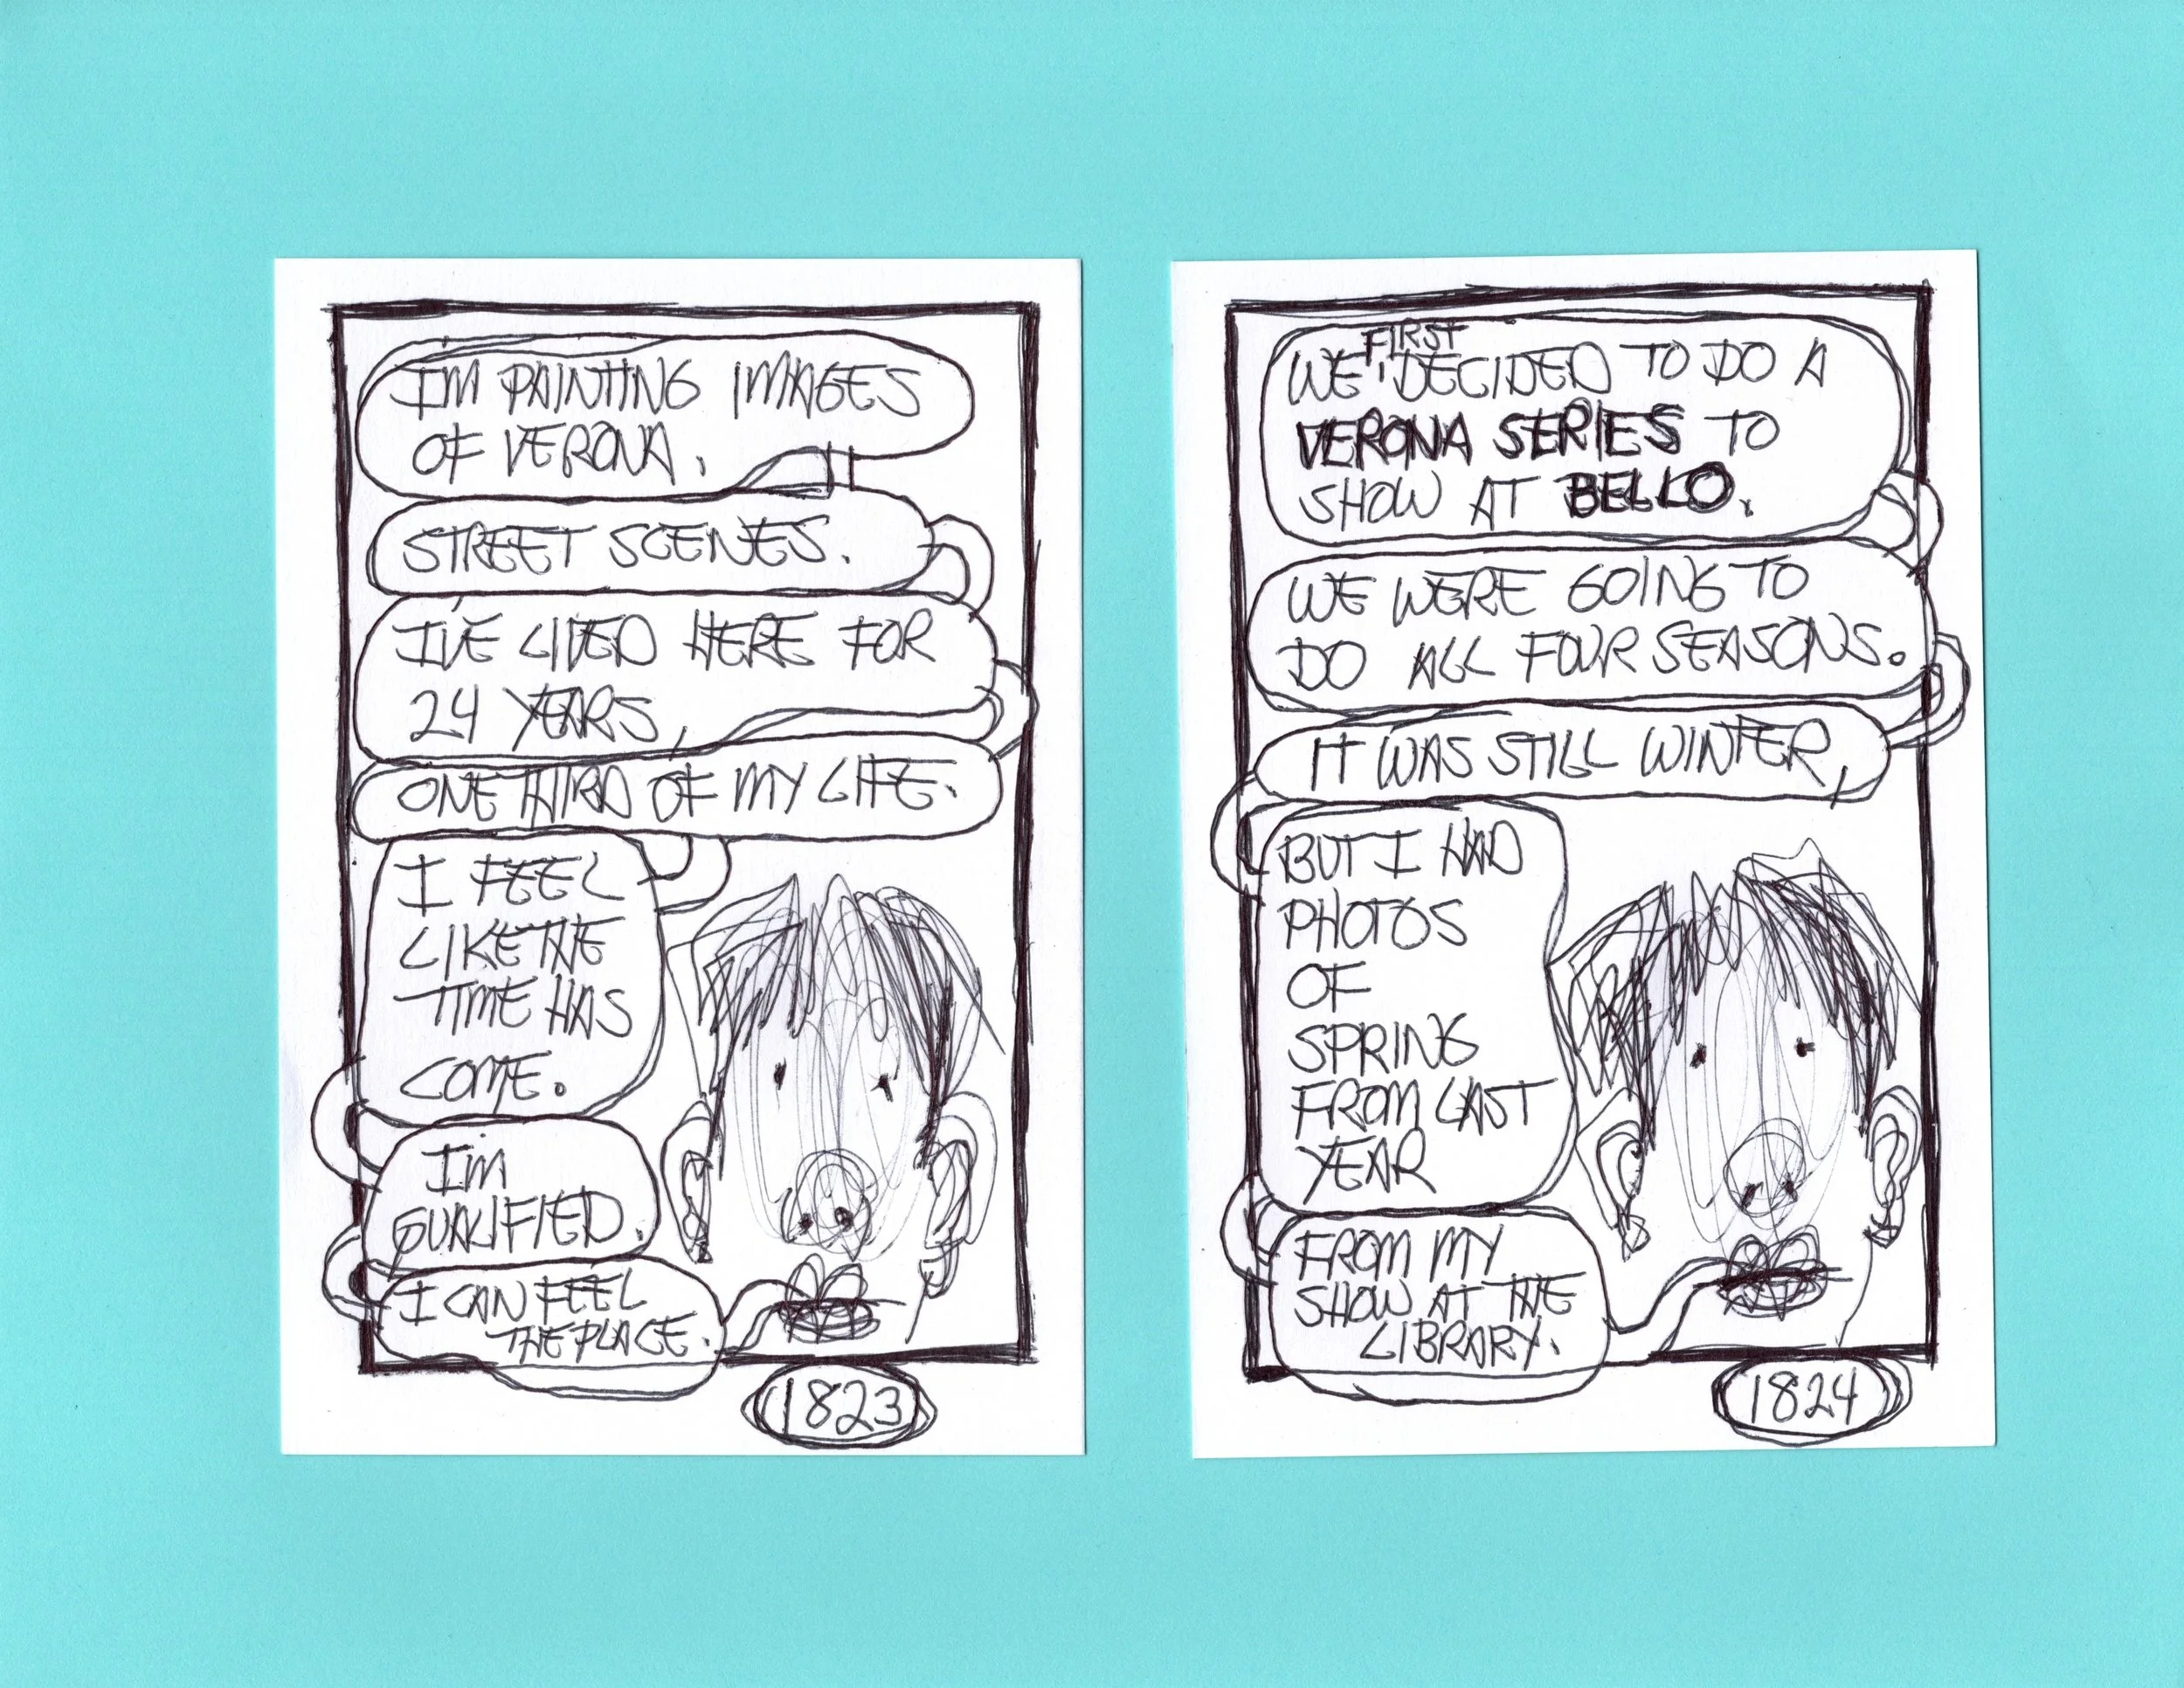 I'M PAINTING IMAGES
OF VERONA.
STREET SCENES.
I'VE LIVED HERE FOR
24 YEARS,
ONE THIRD OF MY LIFE.
I FEEL
LIKE THE
TIME HAS
COME.
I'M
QUALIFIED.
I CAN FEEL
THE PLACE.
1823
WE FIRST DECIDED TO DO A
VERONA SERIES TO
SHOW AT BELLO.
WE WERE GOING TO
DO ALL FOUR SEASONS.
IT WAS STILL WINTER,
BUT I HAD
PHOTOS
OF
SPRING
FROM LAST
YEAR
FROM MY
SHOW AT THE
LIBRARY.
1824